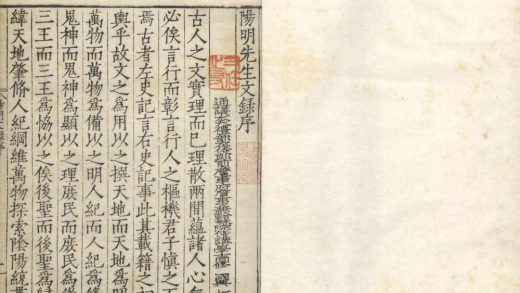 陽明先生文録序
古人之文實理而已理散兩間蘊諸人心無
必俟言行而彰言行人之樞機君子慎之
焉古者左史記言右史記事此其載籍之
與乎故文之爲用以之撰天地而天地爲
萬物而萬物爲備以之明人紀而人紀爲
鬼神而鬼神爲顯以之理庶民而庶民爲
三王而三王爲恊以之俟後聖而後聖爲
緯天地肇脩人紀綱維萬物探索陰陽統